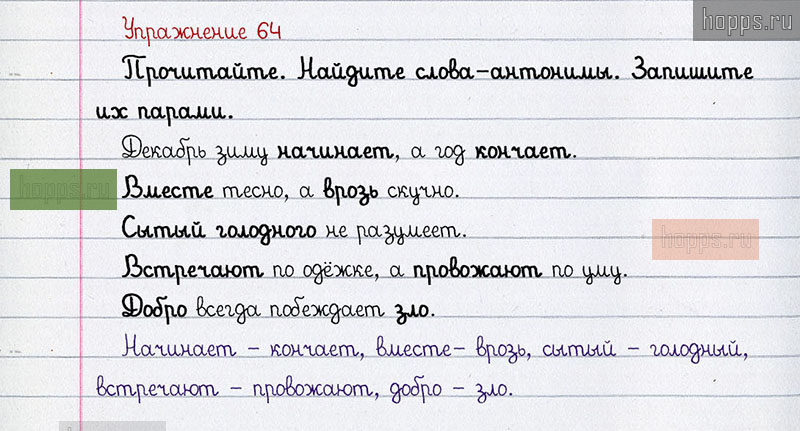 hopps.ru
Упражнение 64
Прочитайте. Найдите слова-антонимы. Запишите
их парами.
Декабрь зиму начинает, а год кончает.
hopps.ru
Вместе тесно, а врозь скучно.
Сытый голодного не разумеет.
hopps.ru
Встречают по одёжке, а провожают по уму.
Добро всегда побеждает зло.
Начинает – кончает, вместе– врозь, сытый – голодный,
встречают – провожают, добро – зло.